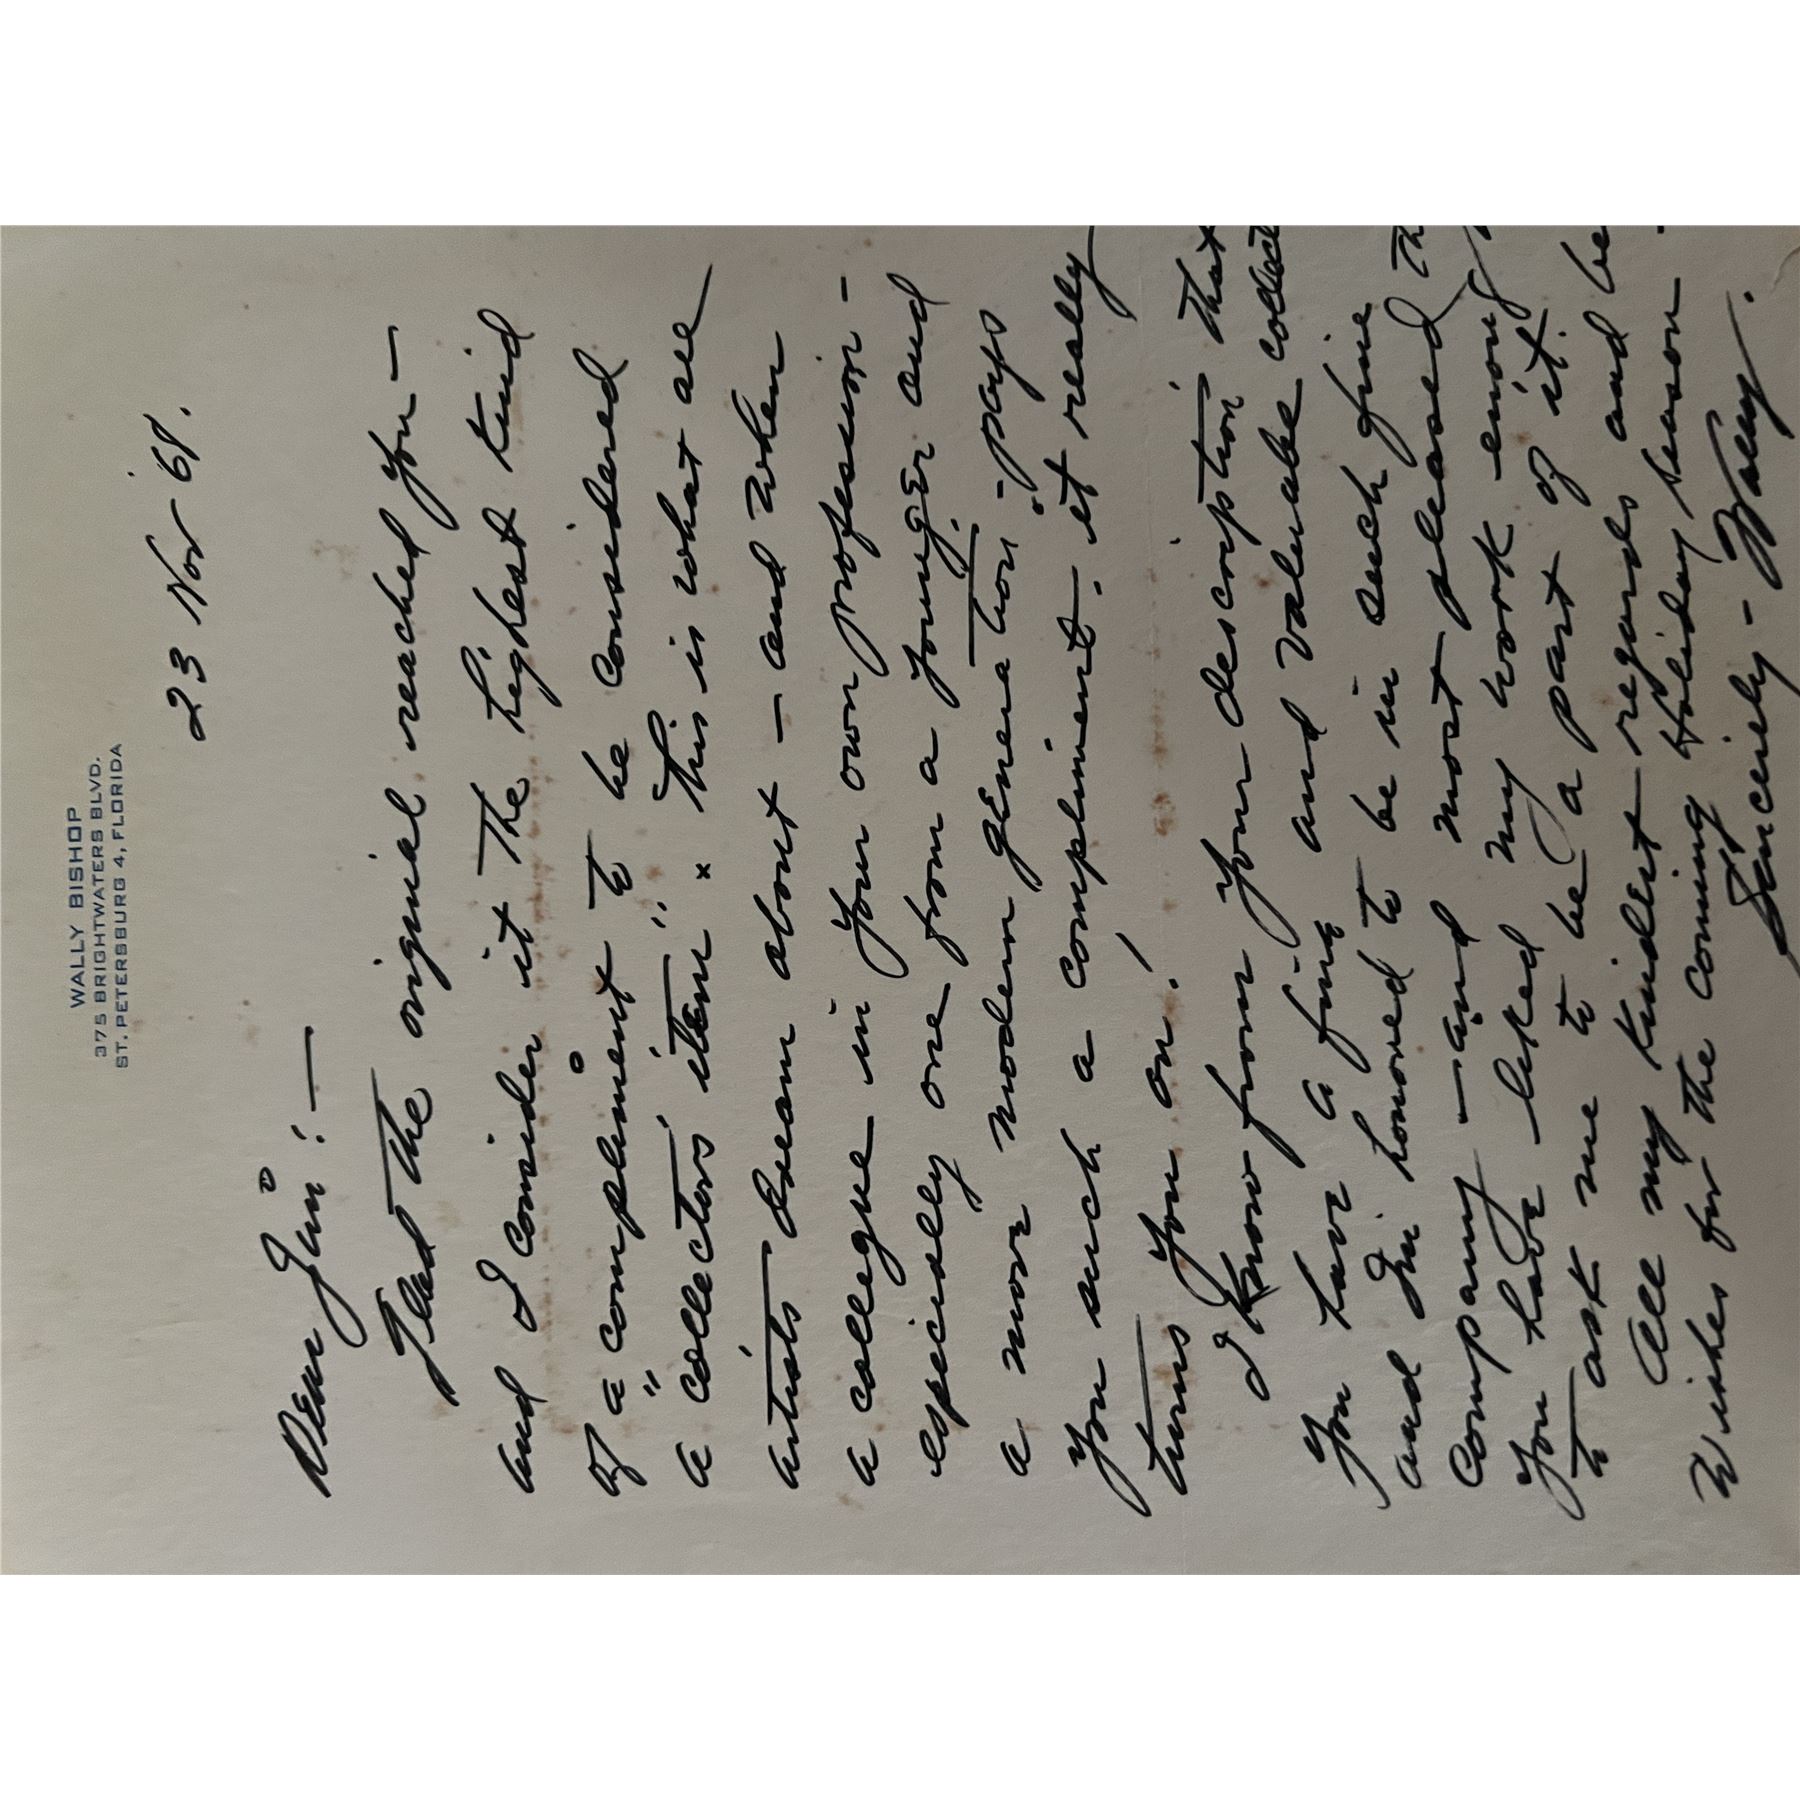 WALLY BISHOP
375 BRIGHTWATERS BLVD.
ST. PETERSBURG 4, FLORIDA
23 Nov '68.
Dear Jim: —
Glad the original reached you —
and I consider it the highest kind
of a compliment to be considered
a "collectors item". This is what all
artists dream about — and when
a collegue in your own profession —
especially one from a younger and
a more modern generation - pays
you such a compliment - it really
turns you on!
I know from your description that
you have a fine and valuable collect
and I'm honored to be in such fine
company — and most pleased th
you have liked my work enoug
to ask me to be a part of it.
All my kindest regards and be
wishes for the coming Holiday season -
Sincerely - Wally.